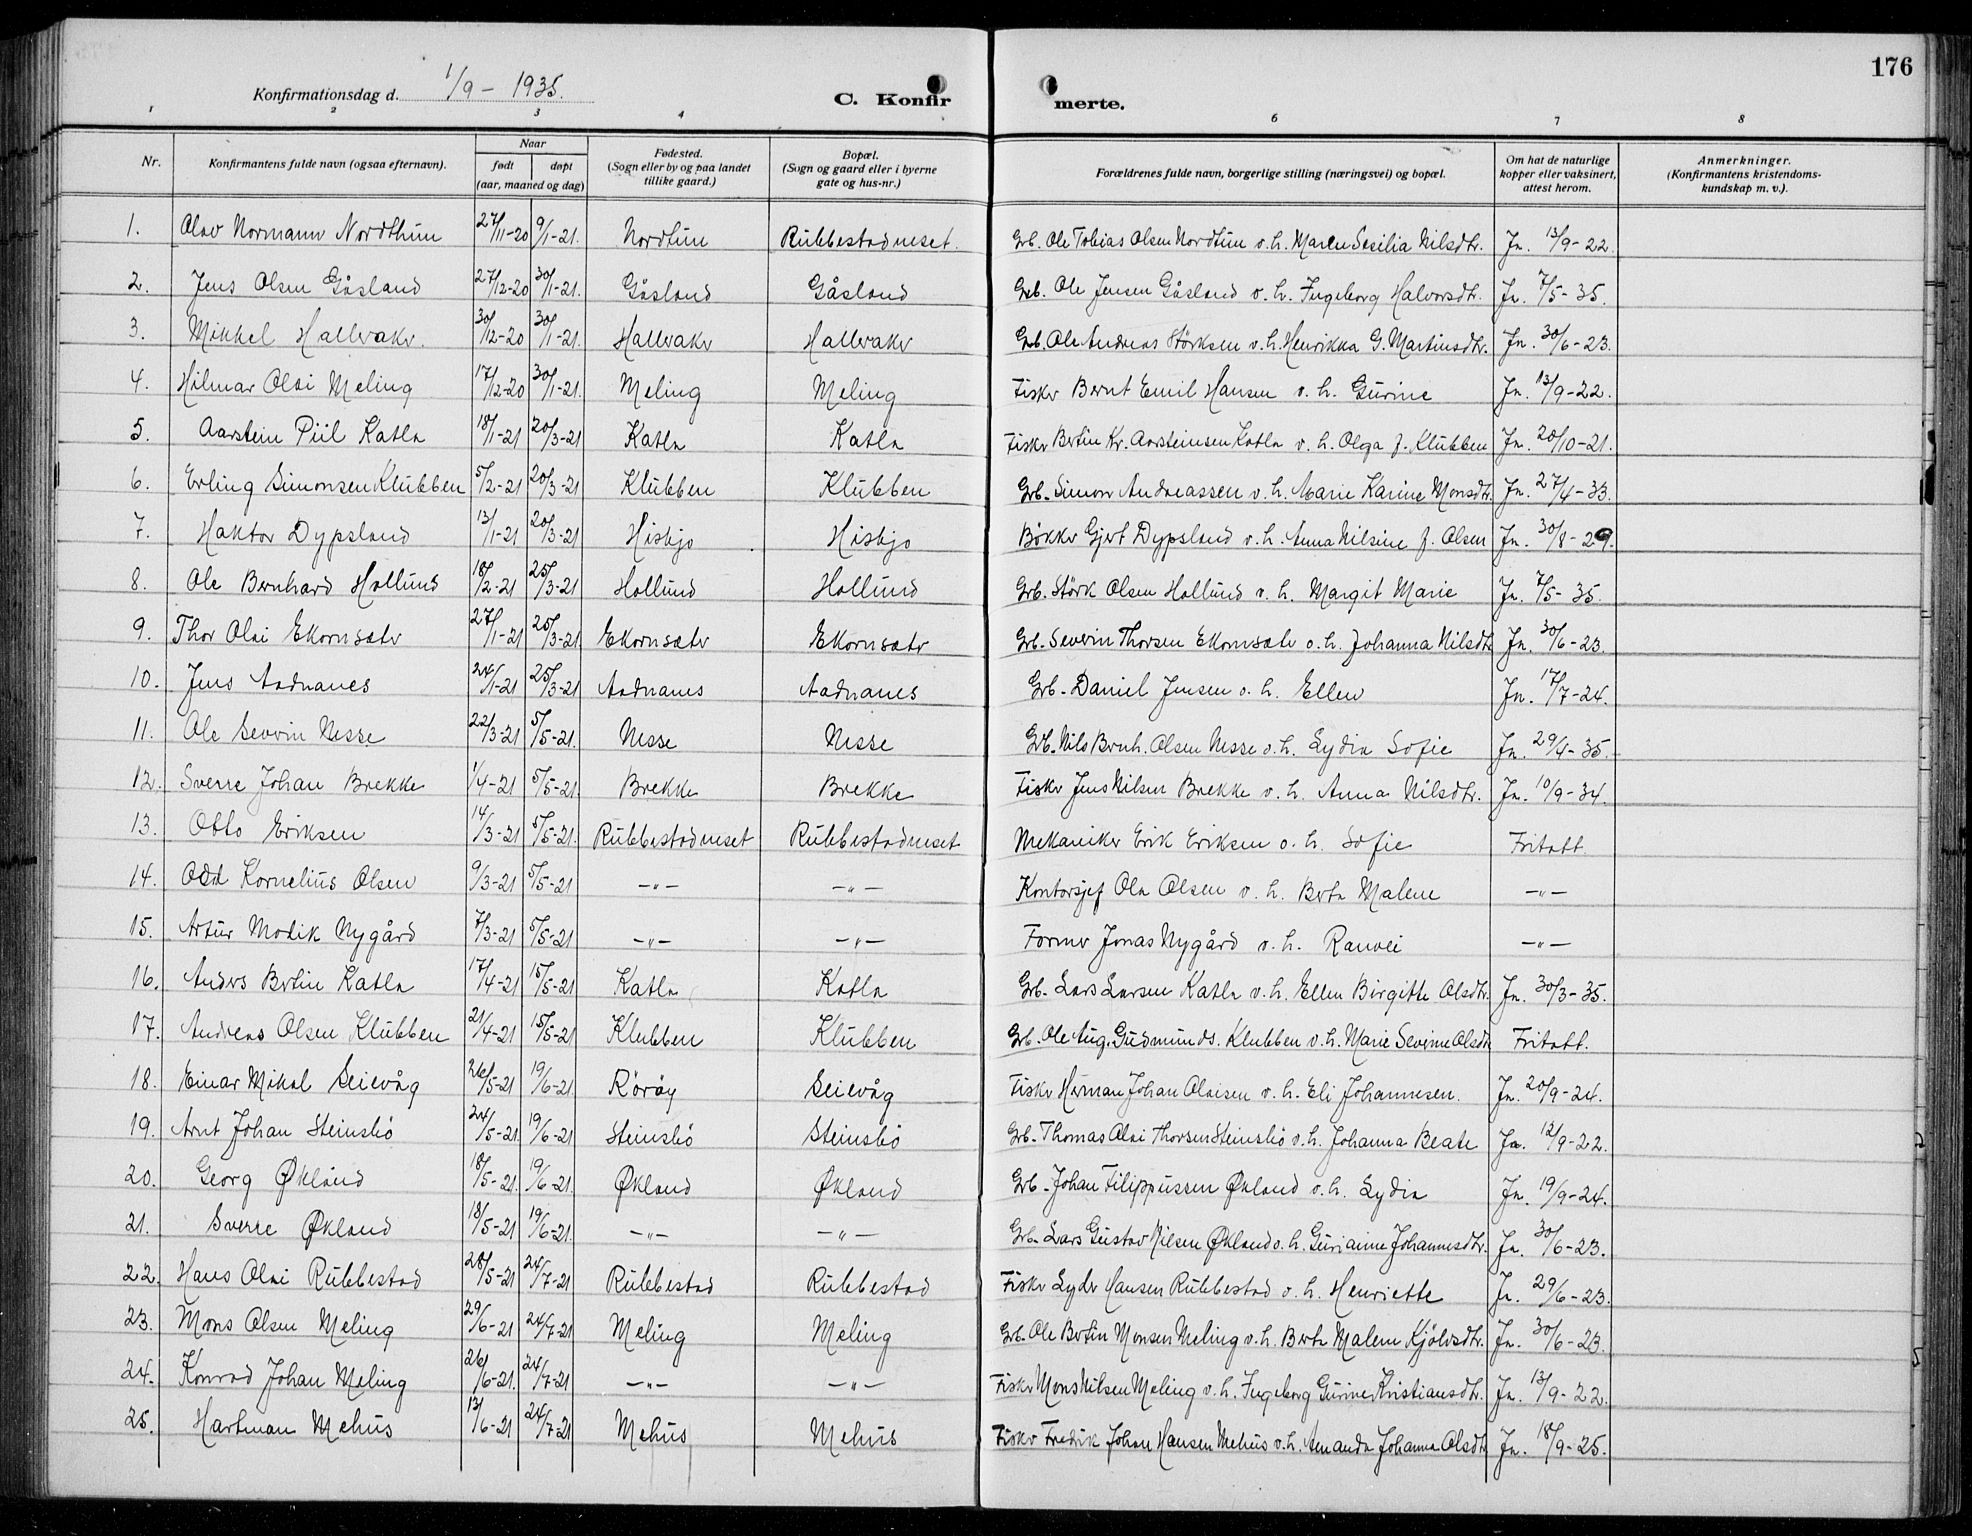 176
Konfirmationsdag d. 1/9 - 1935.
C. Konfirmerte.
1 2 3 4 6 7 8
Nr. | Konfirmantens fulde navn (ogsaa efternavn). | Naar født døpt (aar, maaned og dag) | Fødested. (Sogn eller by og paa landet tillike gaard.) | Bopæl. (Sogn og gaard eller i byerne gate og hus-nr.) | Forældrenes fulde navn, borgerlige stilling (næringsvei) og bopæl. | Om hat de naturlige kopper eller vaksinert, attest herom. | Anmerkninger. (Konfirmantens kristendomskundskap m. v.).
1. Olav Normann Nordthun 27/11-20 9/1-21. Nordtun Rubbestadneset. Grb. Ole Tobias Olsen Nordtun o. h. Maren Sesilia Nilsdtr. Ja. 13/9-22.
2. Jens Olsen Gåsland 27/12-20 30/1-21. Gåsland Gåsland Grb. Ole Jensen Gåsland o. h. Ingeborg Halvorsdtr. Ja. 7/5-35.
3. Mikkel Hallvaker. 30/12-20 30/1-21. Hallvaker Hallvaker Grb. Ole Andreas Störksen o. h. Henrikka G. Martinsdtr. Ja. 30/6-23.
4. Hilmar Olai Meling 17/12-20 30/1-21. Meling Meling Fisker Bernt Emil Hansen o. h. Gurine Ja. 13/9-22.
5. Aarstein Piil Katla 18/1-21 20/3-21 Katla Katla Fisker Bertin Kr. Aarsteinsen Katla o. h. Olga f. Klubben Ja. 20/10-21.
6. Erling Simonsen Klubben 5/2-21 20/3-21 Klubben Klubben Grb. Simon Andreassen o. h. Marie Karine Monsdtr. Ja. 27/4-33.
7. Haktor Dypsland 13/1-21 20/3-21 Hisbjo Hisbjo Bökker Gjert Dypsland o. h. Anna Nilsine f. Olsen Ja. 30/8-29.
8. Ole Bernhard Hollund 18/2-21 25/3-21 Hollund Hollund Grb. Störk Olsen Hollund o. h. Margit Marie Ja. 7/5-35.
9. Thor Olai Ekornsæter 27/1-21 25/3-21 Ekornsæter Ekornsæter Grb. Severin Thorsen Ekornsæter o. h. Johanna Nilsdtr Ja. 30/6-23.
10. Jens Aadnanes 24/1-21 25/3-21 Aadnanes Aadnanes Grb. Daniel Jensen o. h. Ellen Ja. 17/7-24.
11. Ole Severin Nesse 22/3-21 5/5-21. Nesse Nesse Grb. Nils Bernh. Olsen Nesse o. h. Lydia Sofie Ja. 29/4-35.
12. Sverre Johan Brekke 1/4-21 5/5-21. Brekke Brekke Fisker Jens Nilsen Brekke o. h. Anna Nilsdtr. Ja. 10/9-34.
13. Otto Eriksen 14/3-21 5/5-21. Rubbestadneset Rubbestadneset Mekaniker Erik Eriksen o. h. Sofie Fritatt.
14. Odd Kornelius Olsen 9/3-21 5/5-21 -"- -"- Kontorsjef Ola Olsen o. h. Berta Malene -"-
15. Artur Modik Nygård 7/3-21 5/5-21 -"- -"- Former Jonas Nygård o. h. Ranvei -"-
16. Anders Bertin Katla 17/4-21 15/5-21 Katla Katla Grb. Lars Larsen Katla o. h. Ellen Birgitte Olsdtr. Ja. 30/3-35.
17. Andreas Olsen Klubben 21/4-21 15/5-21 Klubben Klubben Grb. Ole Aug. Gudmunds. Klubben o. h. Marie Severine Olsdtr Fritatt.
18. Einar Mikal Seievåg 26/5-21 19/6-21. Röröy Seievåg Fisker Herman Johan Olaisen o. h. Eli Johannesen. Ja. 20/9-24.
19. Arnt Johan Steinsbö 24/5-21 19/6-21 Steinsbö Steinsbö Grb. Thomas Olai Thorsen Steinsbö o. h. Johanna Beate Ja. 12/9-22.
20. Georg Økland 18/5-21 19/6-21. Økland Økland Grb. Johan Filippussen Økland o. h. Lydia Ja. 19/9-24.
21. Sverre Økland 18/5-21 19/6-21. -"- -"- Grb. Lars Gustav Nilsen Økland o. h. Gurianne Johannesdtr. Ja. 30/6-23.
22. Hans Olai Rubbestad 28/5-21 24/7-21 Rubbestad Rubbestad Fisker Lyder Hansen Rubbestad o. h. Henriette Ja. 29/6-23.
23. Mons Olsen Meling 29/6-21 24/7-21 Meling Meling Grb. Ole Bertin Monsen Meling o. h. Berte Malene Kjölvsdtr. Ja. 30/6-23.
24. Konrad Johan Meling 26/6-21. 24/7-21 -"- -"- Fisker Mons Nilsen Meling o. h. Ingeborg Gurine Kristiansdtr. Ja. 13/9-22.
25. Hartman Mehus 13/6-21 24/7-21 Mehus Mehus Fisker Fredrik Johan Hansen Mehus o. h. Amanda Johanna Olsdtr Ja. 18/9-25.